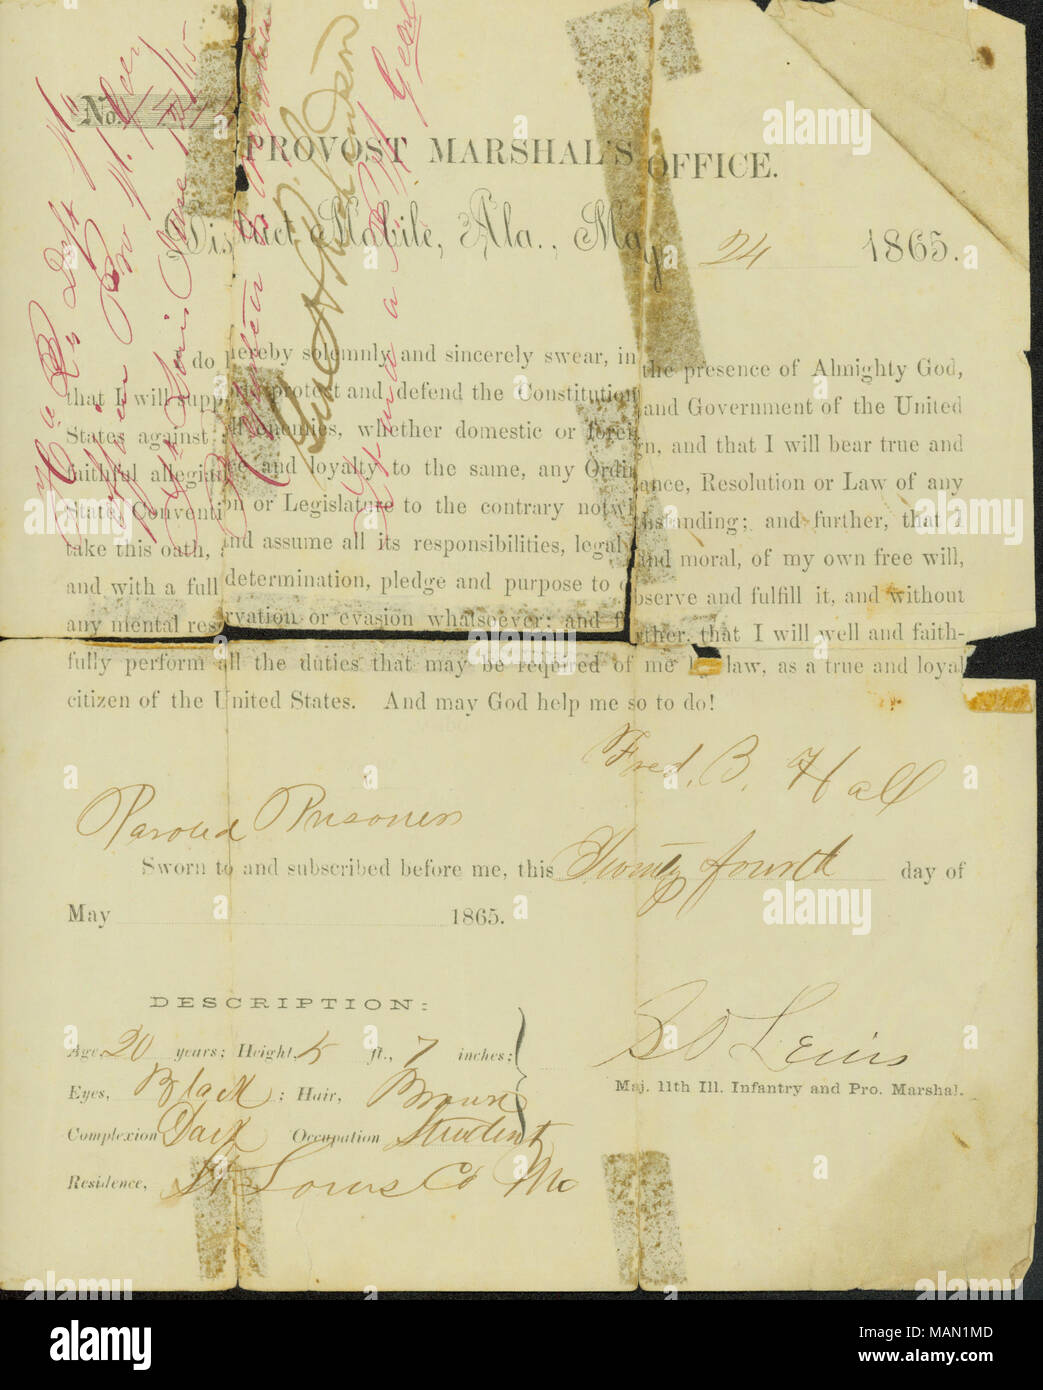 No.
PROVOST MARSHAL'S OFFICE.
District Mobile, Ala., May 24 1865.
do hereby solemnly and sincerely swear, in the presence of Almighty God,
that I will support protect and defend the Constitution and Government of the United
States against all enemies, whether domestic or foreign, and that I will bear true and
faithful allegiance and loyalty to the same, any Ordinance, Resolution or Law of any
State, Convention or Legislature to the contrary notwithstanding; and further, that I
take this oath, and assume all its responsibilities, legal and moral, of my own free will,
and with a full determination, pledge and purpose to observe and fulfill it, and without
any mental reservation or evasion whatsoever; and further, that I will well and faith-
fully perform all the duties that may be required of me by law, as a true and loyal
citizen of the United States. And may God help me so to do!
Fred. B. Hall
Paroled Prisoner
Sworn to and subscribed before me, this Twenty fourth day of
May 1865.
DESCRIPTION:
Age, 20 years; Height, 5 ft., 7 inches;
Eyes, Black; Hair, Brown
Complexion Dark Occupation Student
Residence, St Louis Co Mo
S D Lewis
Maj. 11th Ill. Infantry and Pro. Marshal.
alamy
Image ID: MAN1MD
www.alamy.com